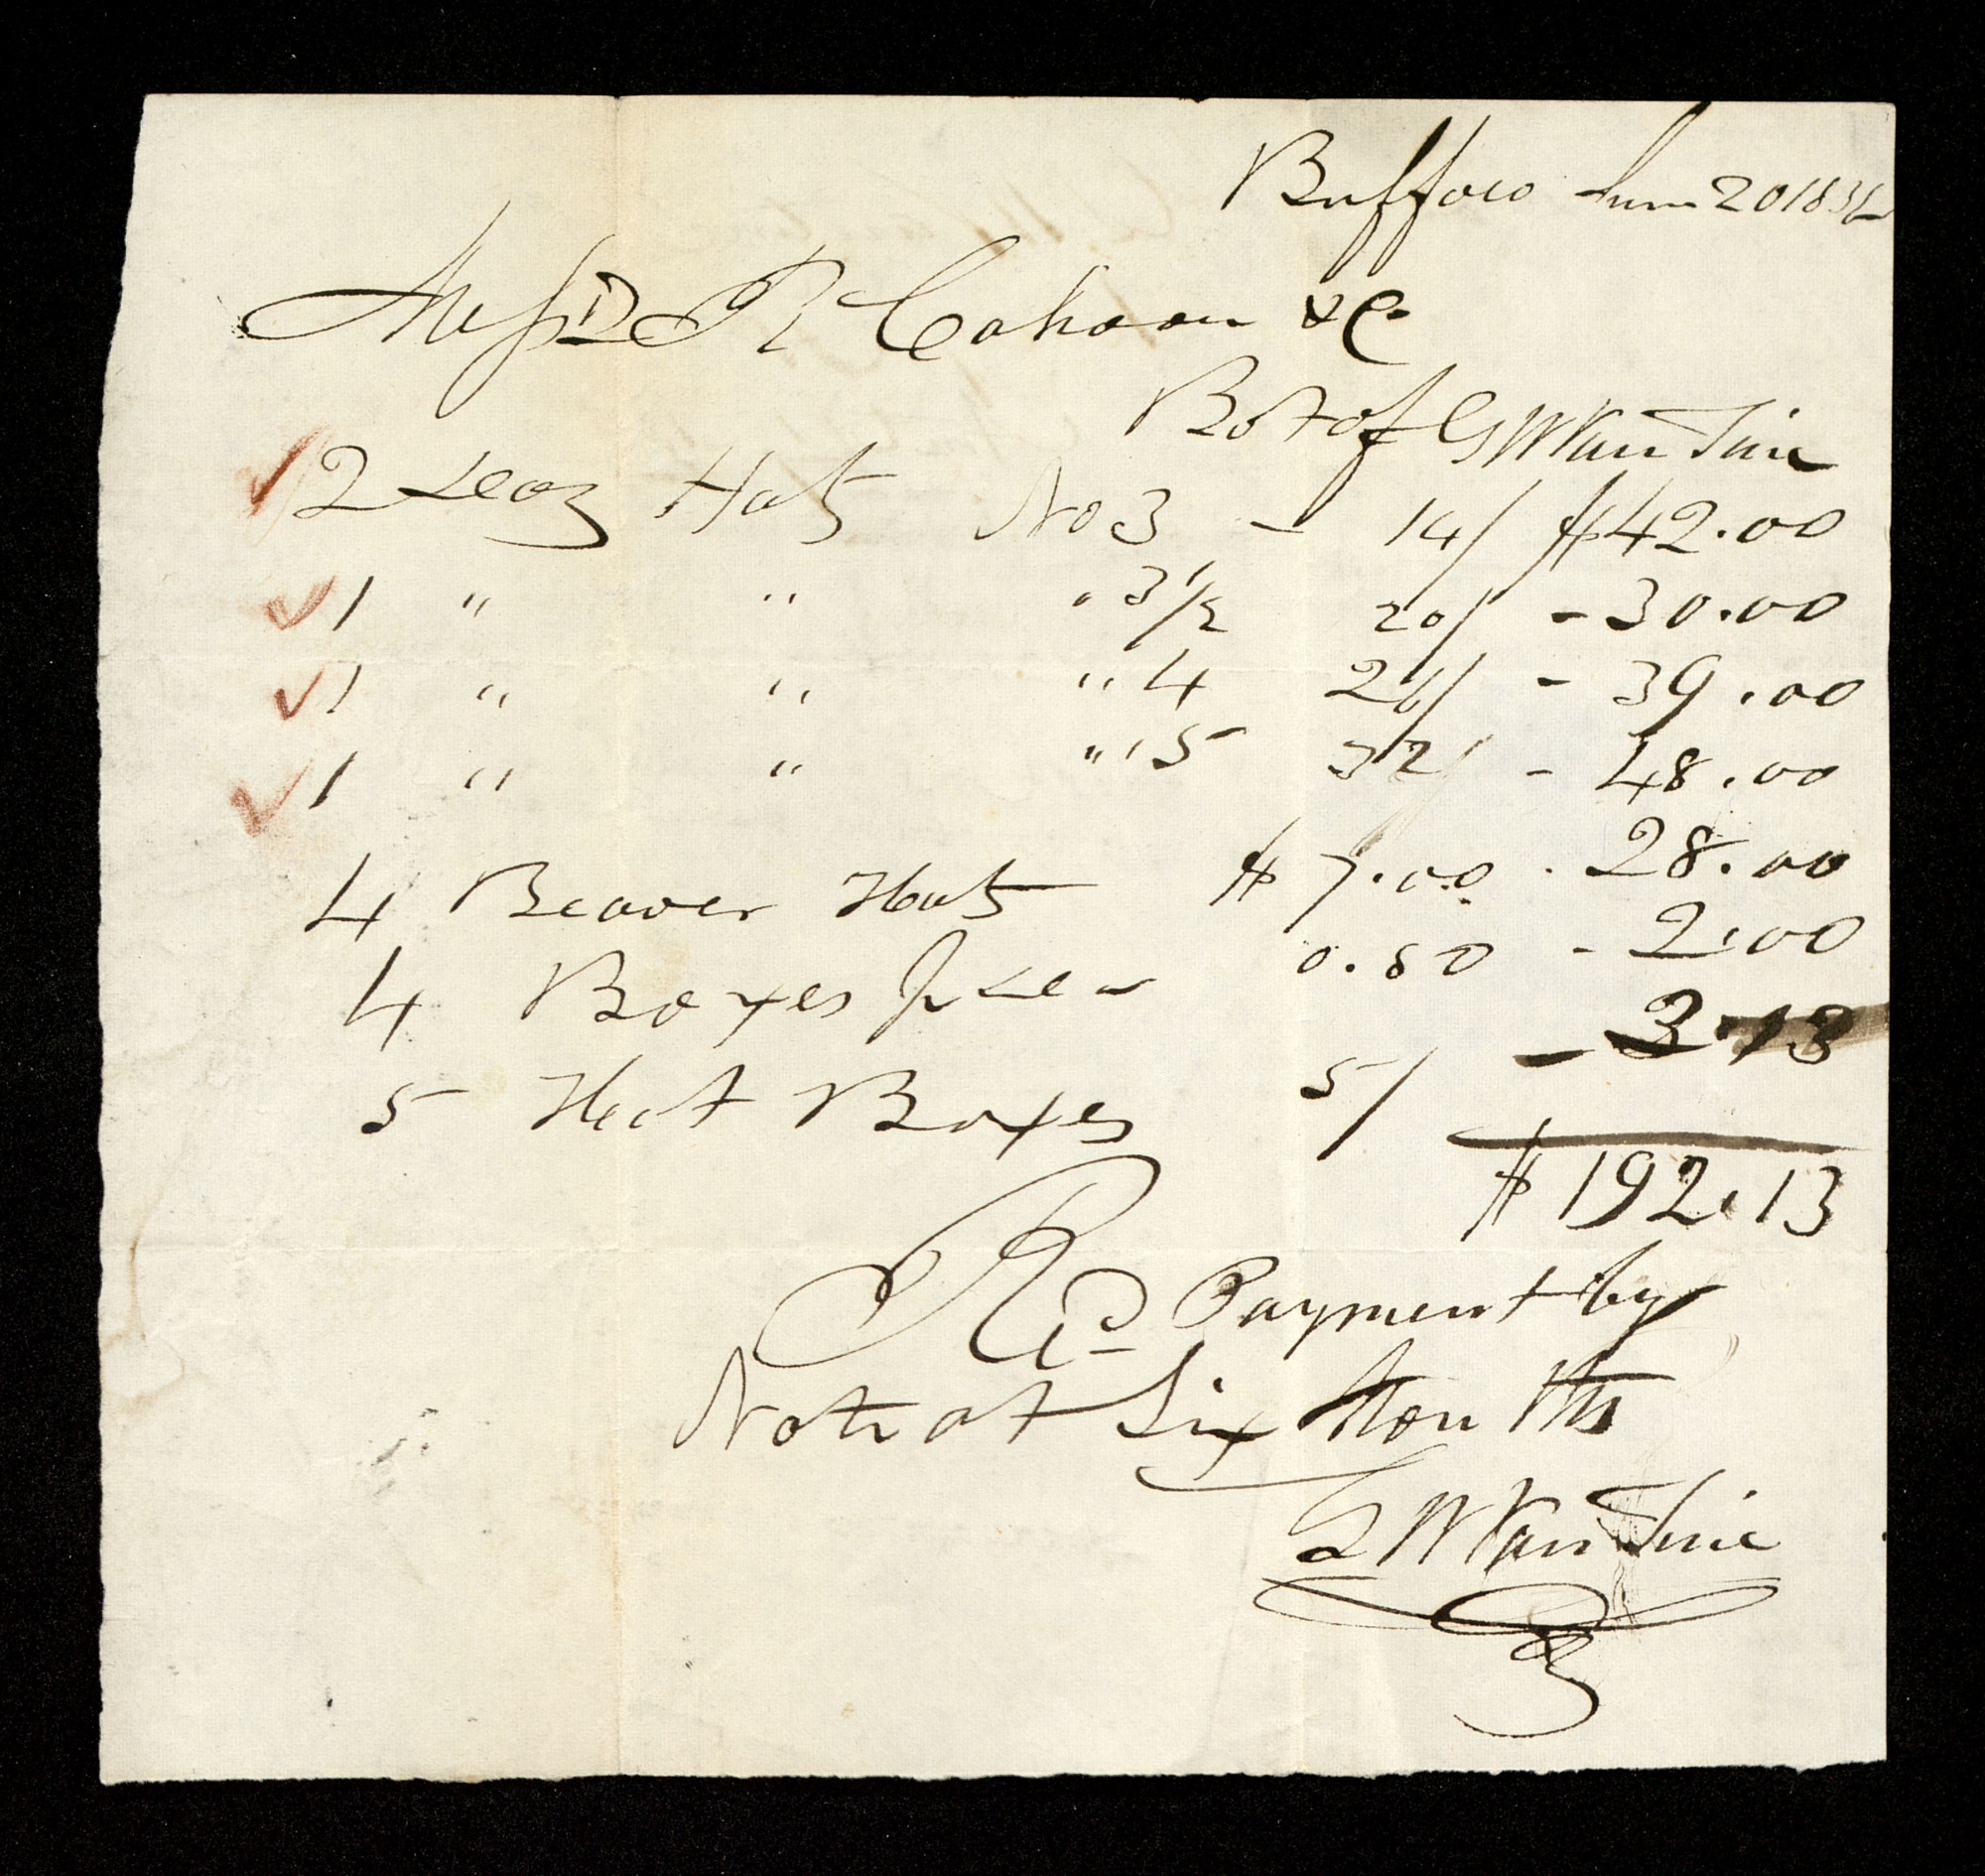 Buffalo June 20 1832
Messrs R Cahoon & Co
Bot of G W Van Tine
2 Doz Hats No 3 - 14/ $42.00
1 " " " 3 1/2 20/ - 30.00
1 " " " 4 26/ - 39.00
1 " " " 5 32/ - 48.00
4 Beaver Hats $7.00 - 28.00
4 Boxes 0.50 - 2.00
5 Hat Boxes 5/ - 3.13
$192.13
Recd Payment by
Note at Six Months
G W Van Tine